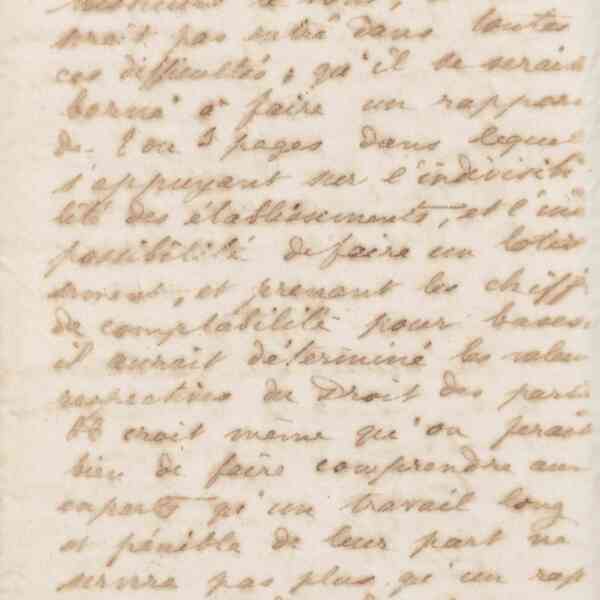 serait pas entré dans toutes
ces difficultés, qu'il se serait
borné à faire un rapport
de 2 ou 3 pages dans lequel
s'appuyant sur l'indivisibi
lité des établissements, et l'im
possibilité de faire un lotis
sement, et prenant les chiff
de comptabilité pour bases,
il aurait déterminé les valeu
respectives du Droit des parti
croit même qu'on ferait
bien de faire comprendre aux
experts qu'un travail long
et pénible de leur part ne
servira pas plus qu'un rap